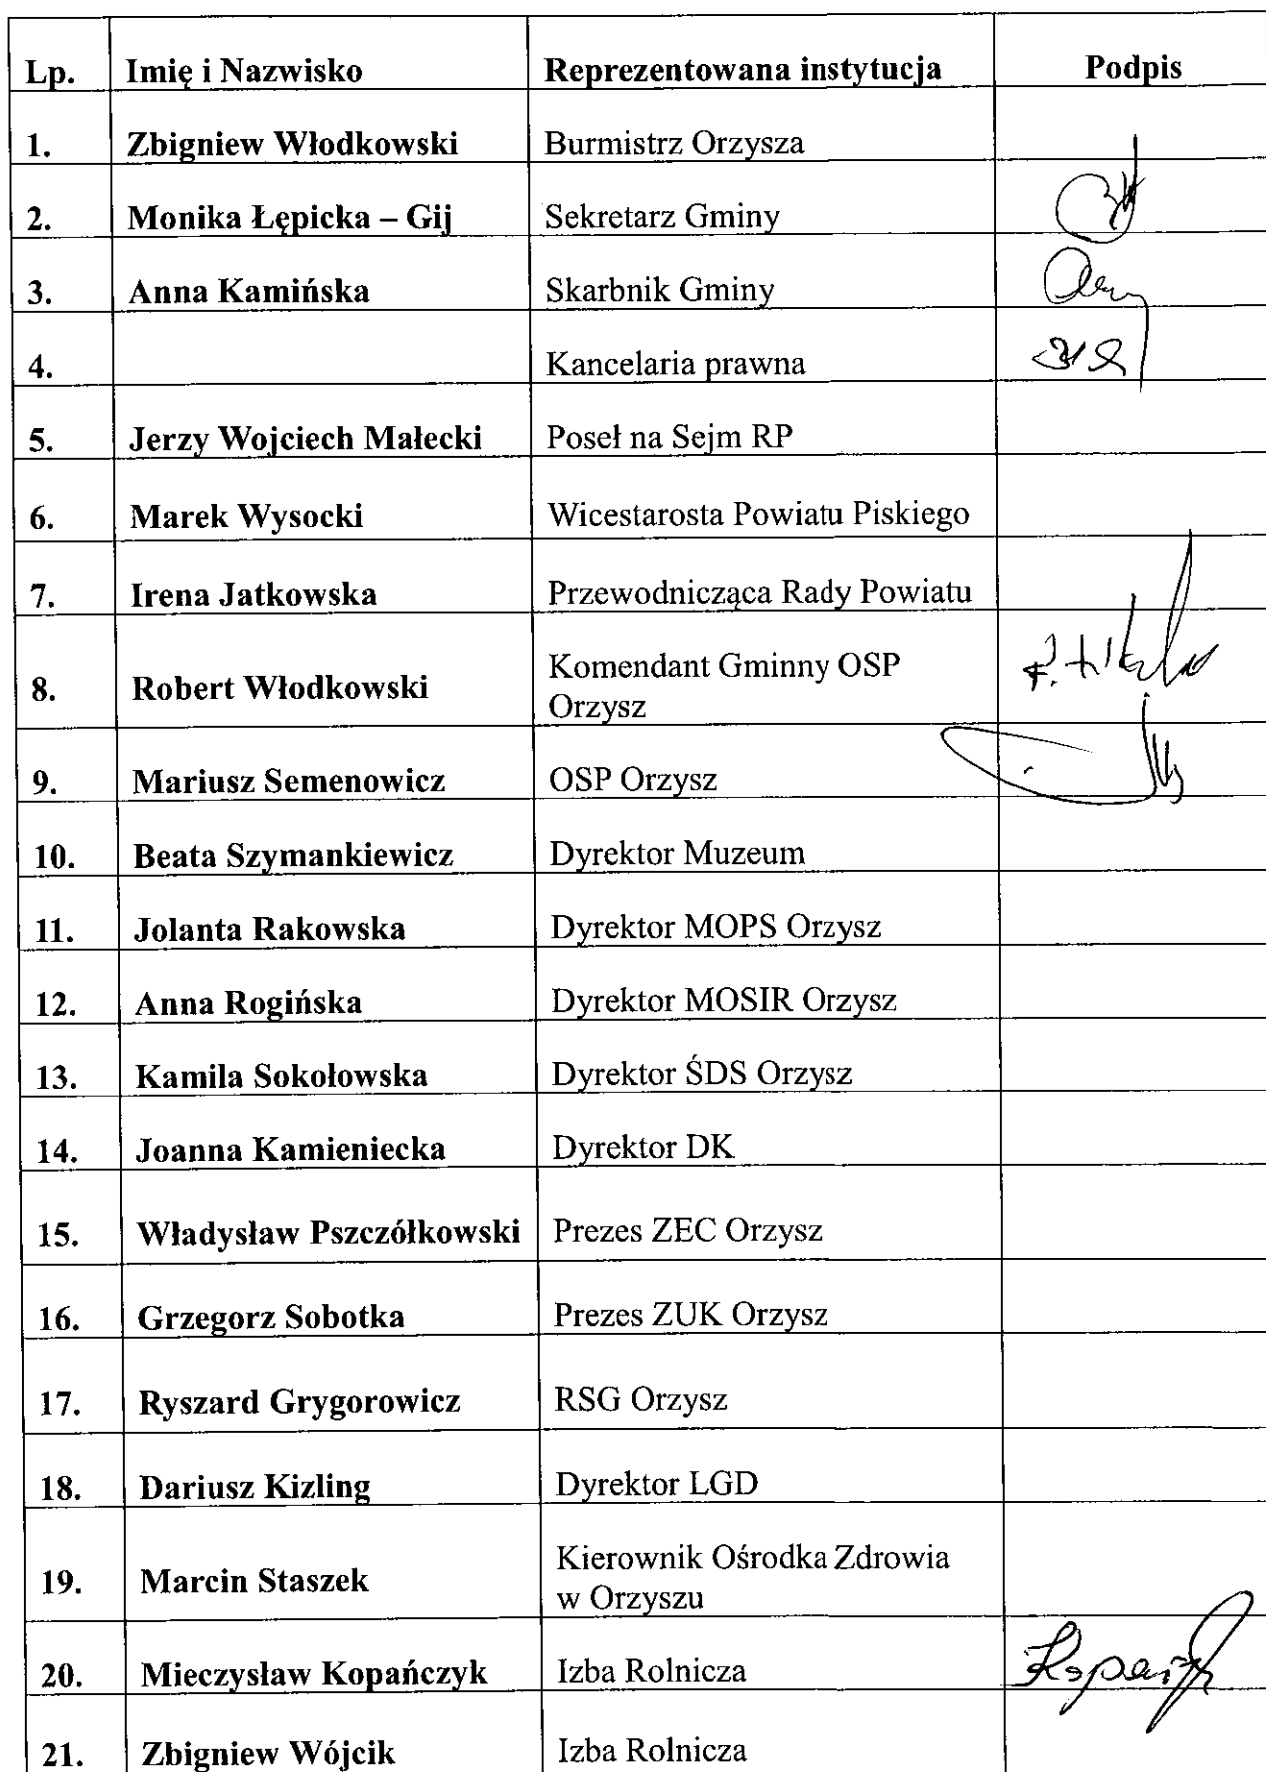 Lp. Imię i Nazwisko Reprezentowana instytucja Podpis
1. Zbigniew Włodkowski Burmistrz Orzysza
2. Monika Łępicka – Gij Sekretarz Gminy
3. Anna Kamińska Skarbnik Gminy
4. Kancelaria prawna
5. Jerzy Wojciech Małecki Poseł na Sejm RP
6. Marek Wysocki Wicestarosta Powiatu Piskiego
7. Irena Jatkowska Przewodnicząca Rady Powiatu
8. Robert Włodkowski Komendant Gminny OSP
Orzysz
9. Mariusz Semenowicz OSP Orzysz
10. Beata Szymankiewicz Dyrektor Muzeum
11. Jolanta Rakowska Dyrektor MOPS Orzysz
12. Anna Rogińska Dyrektor MOSIR Orzysz
13. Kamila Sokołowska Dyrektor ŚDS Orzysz
14. Joanna Kamieniecka Dyrektor DK
15. Władysław Pszczółkowski Prezes ZEC Orzysz
16. Grzegorz Sobotka Prezes ZUK Orzysz
17. Ryszard Grygorowicz RSG Orzysz
18. Dariusz Kizling Dyrektor LGD
19. Marcin Staszek Kierownik Ośrodka Zdrowia
w Orzyszu
20. Mieczysław Kopańczyk Izba Rolnicza
21. Zbigniew Wójcik Izba Rolnicza